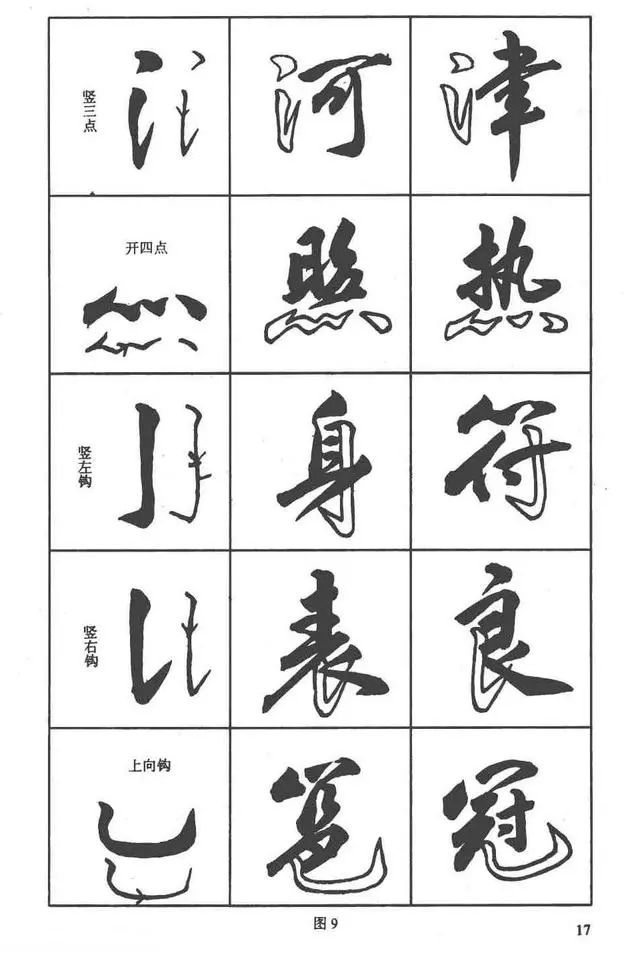 竖三点 河 津
开四点 照 热
竖左钩 身 符
竖右钩 表 良
上向钩 冠
图9
17